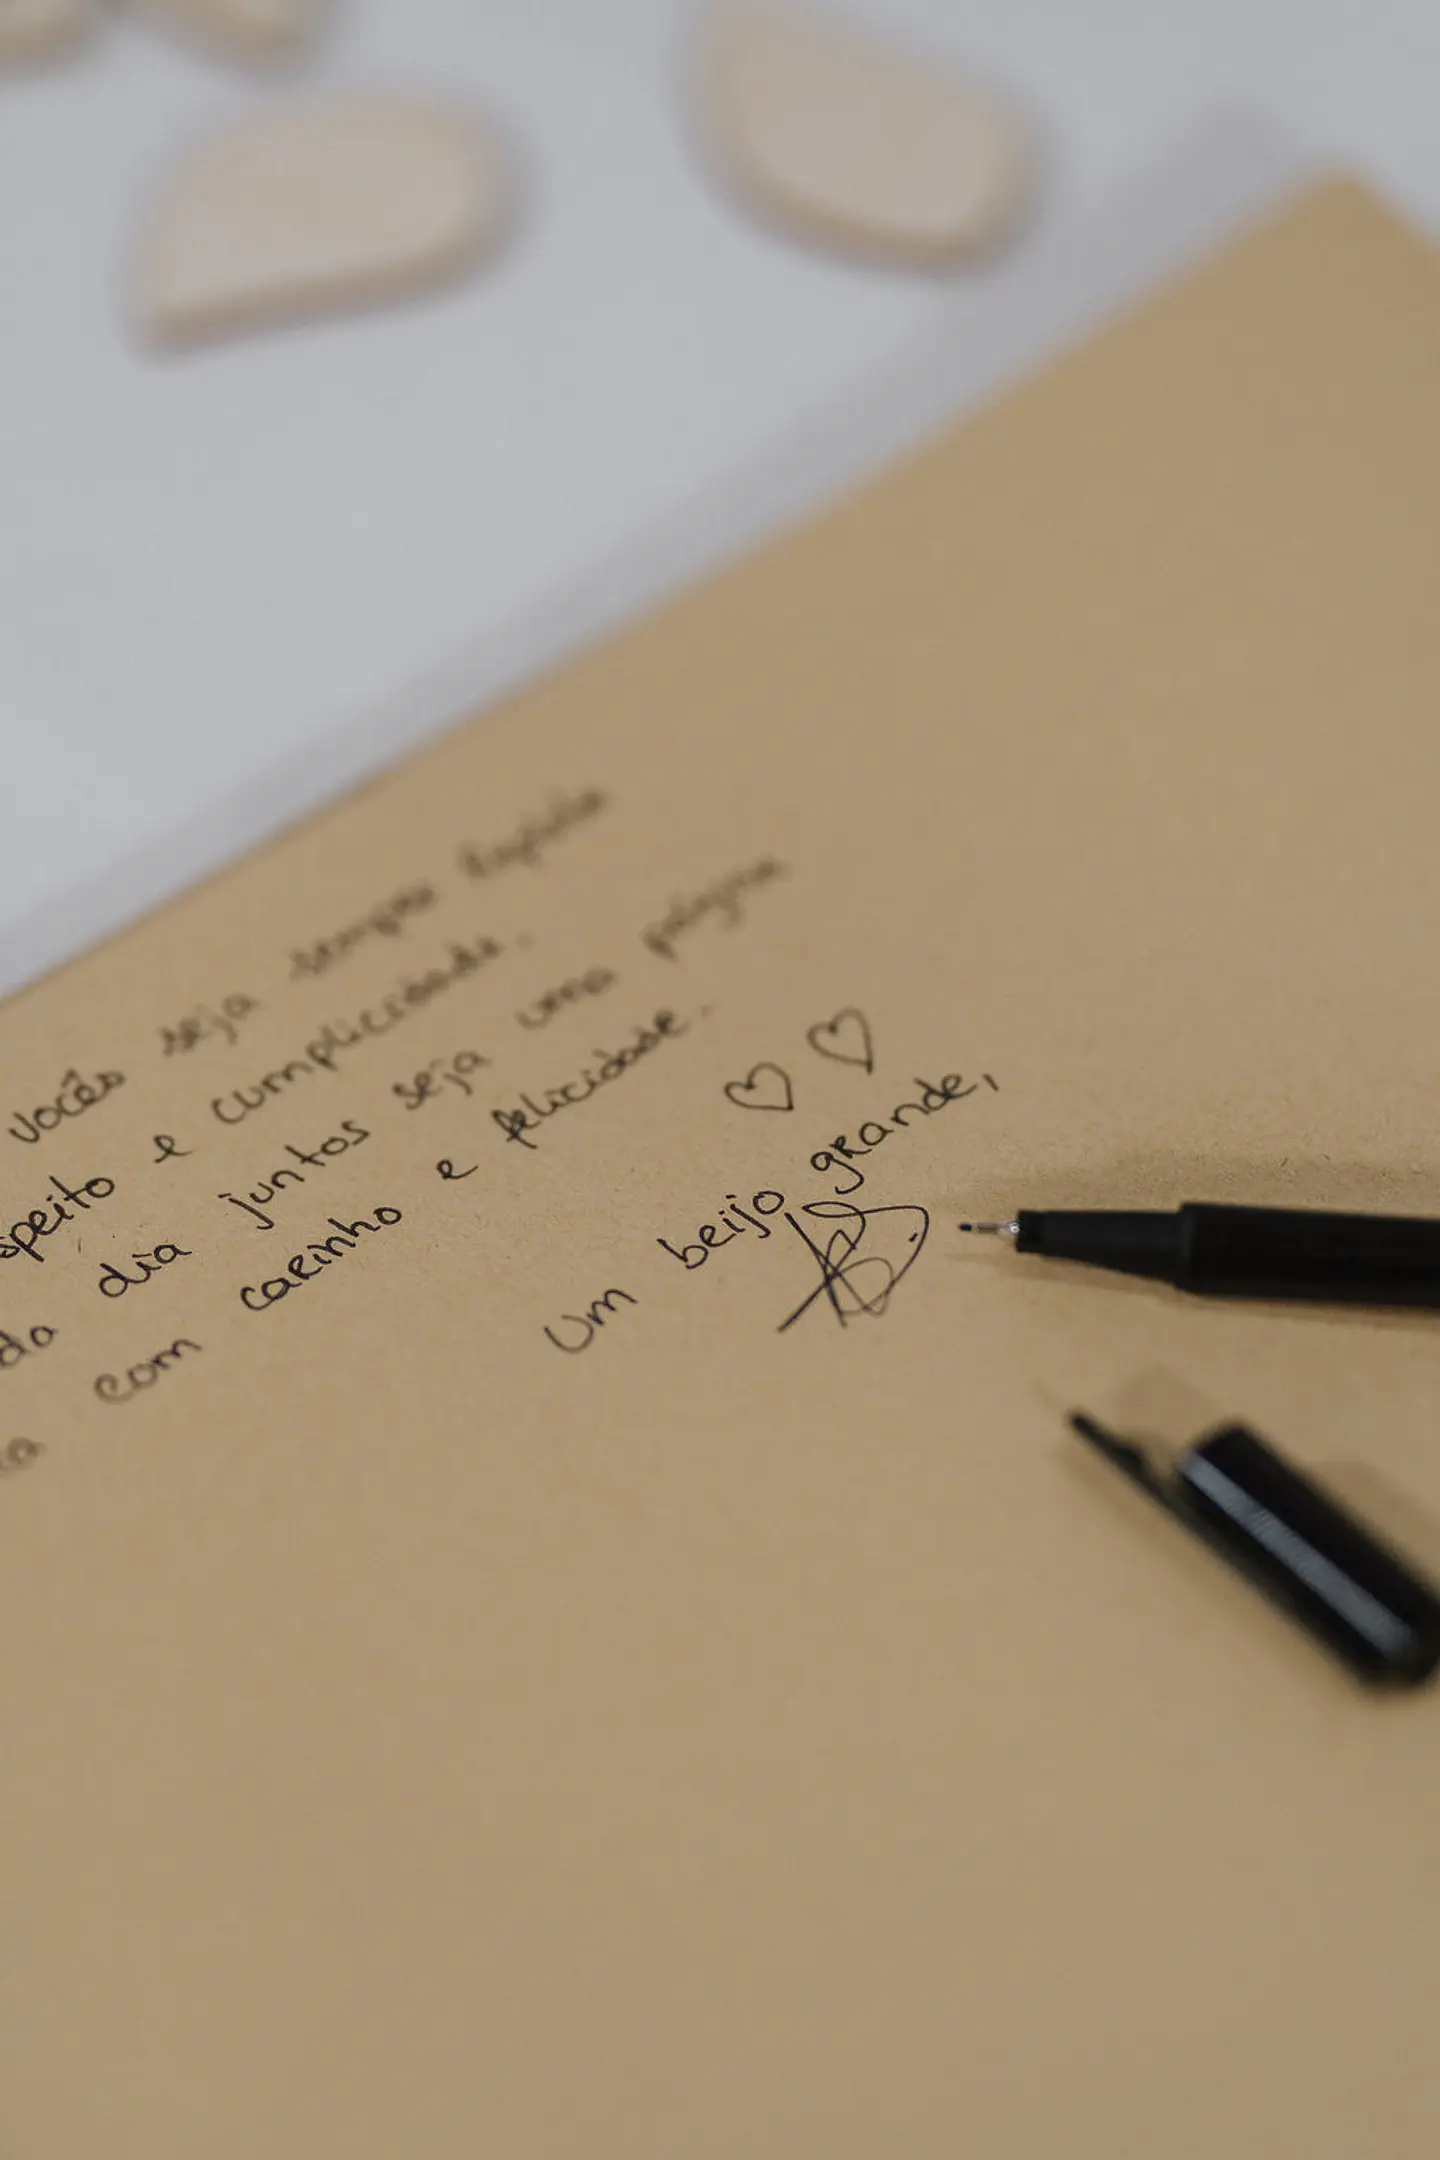 vocês seja sempre
speito e cumplicidade.
da dia juntos seja uma página
com carinho e felicidade.
Um beijo grande,